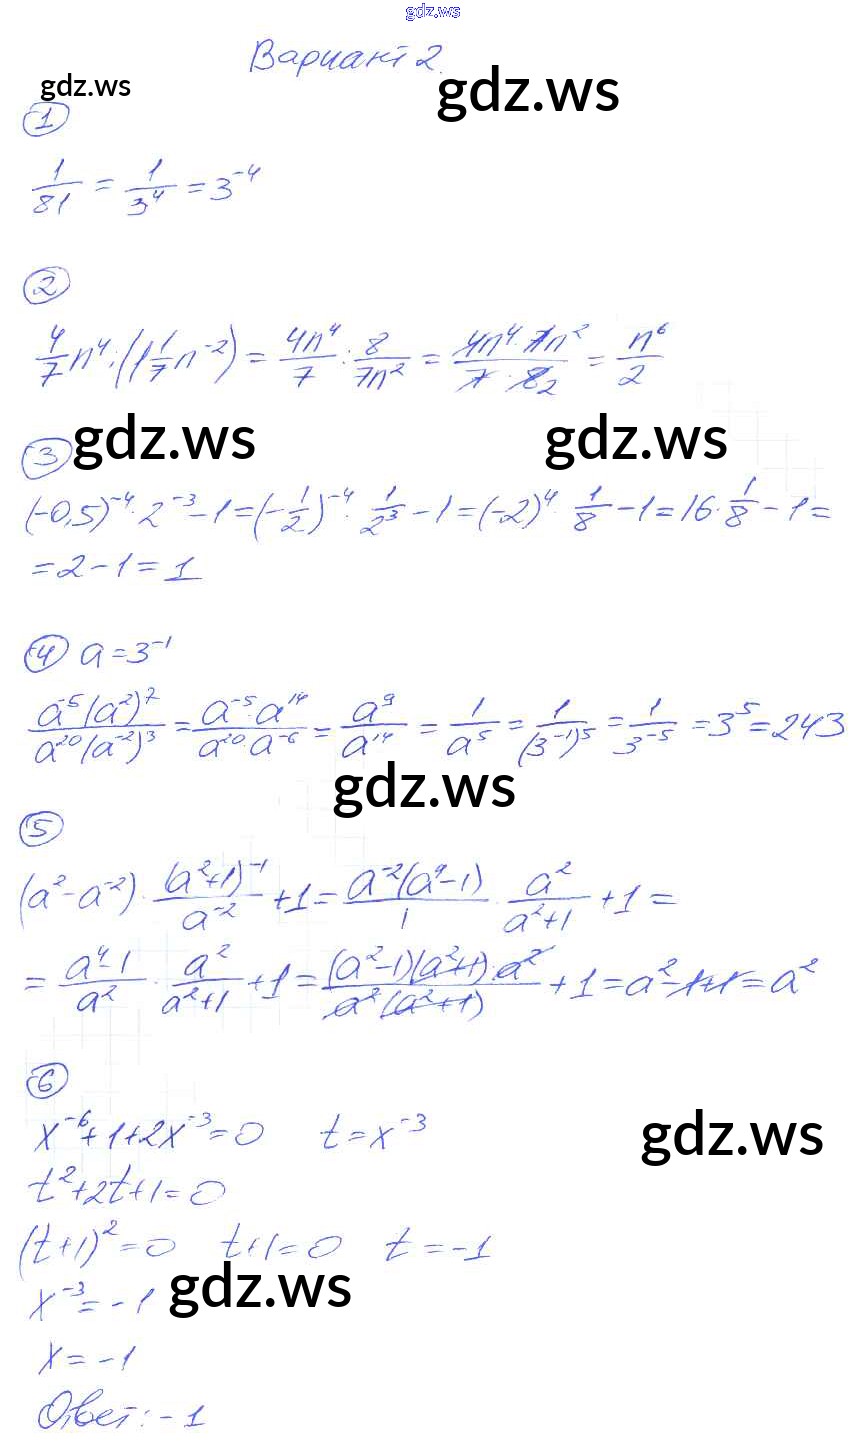 gdz.ws
Вариант 2.
gdz.ws gdz.ws
1
1/81 = 1/3⁴ = 3⁻⁴
2
4/7 n⁴ : (1 1/7 n⁻²) = 4n⁴/7 : 8/7n² = 4n⁴ · 7n²/7 · 8₂ = n⁶/2
gdz.ws gdz.ws
3
(-0,5)⁻⁴ · 2⁻³ - 1 = (-1/2)⁻⁴ · 1/2³ - 1 = (-2)⁴ · 1/8 - 1 = 16 · 1/8 - 1 =
= 2 - 1 = 1
4 a = 3⁻¹
a⁻⁵(a²)⁷/a²⁰(a⁻²)³ = a⁻⁵ · a¹⁴/a²⁰ · a⁻⁶ = a⁹/a¹⁴ = 1/a⁵ = 1/(3⁻¹)⁵ = 1/3⁻⁵ = 3⁵ = 243
gdz.ws
5
(a² - a⁻²) · (a²+1)⁻¹/a⁻² + 1 = a⁻²(a⁴-1)/1 · a²/a²+1 + 1 =
= a⁴-1/a² · a²/a²+1 + 1 = (a²-1)(a²+1) · a²/a²(a²+1) + 1 = a² - 1 + 1 = a²
6
x⁻⁶ + 1 + 2x⁻³ = 0 t = x⁻³
gdz.ws
t² + 2t + 1 = 0
(t+1)² = 0 t+1 = 0 t = -1
gdz.ws
x⁻³ = -1
x = -1
Ответ: -1